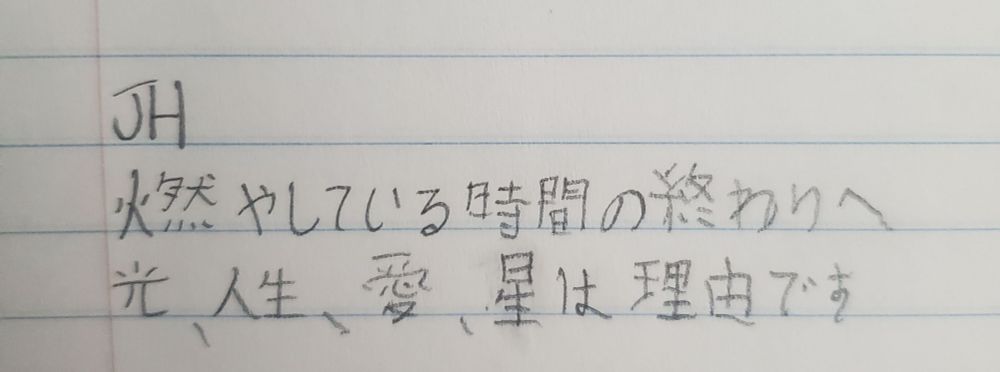 JH
燃やしている時間の終わりへ
光、人生、愛、星は理由です